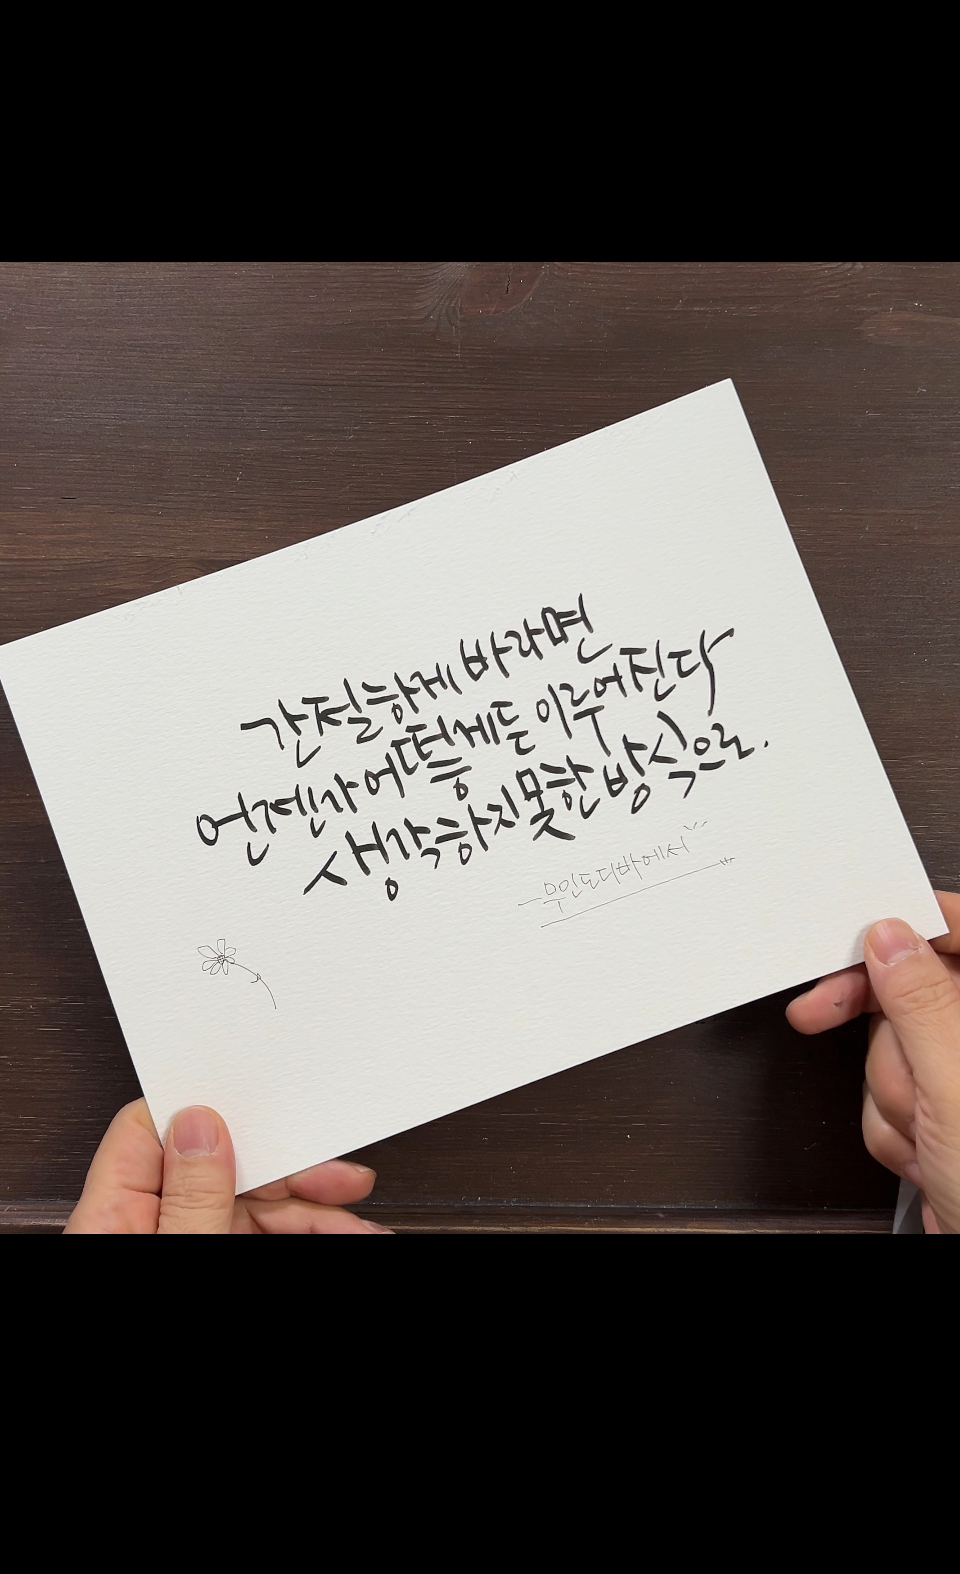 간절하게 바라면
언젠가 어떻게든 이루어진다
생각하지 못한 방식으로.
-무인도디바에서